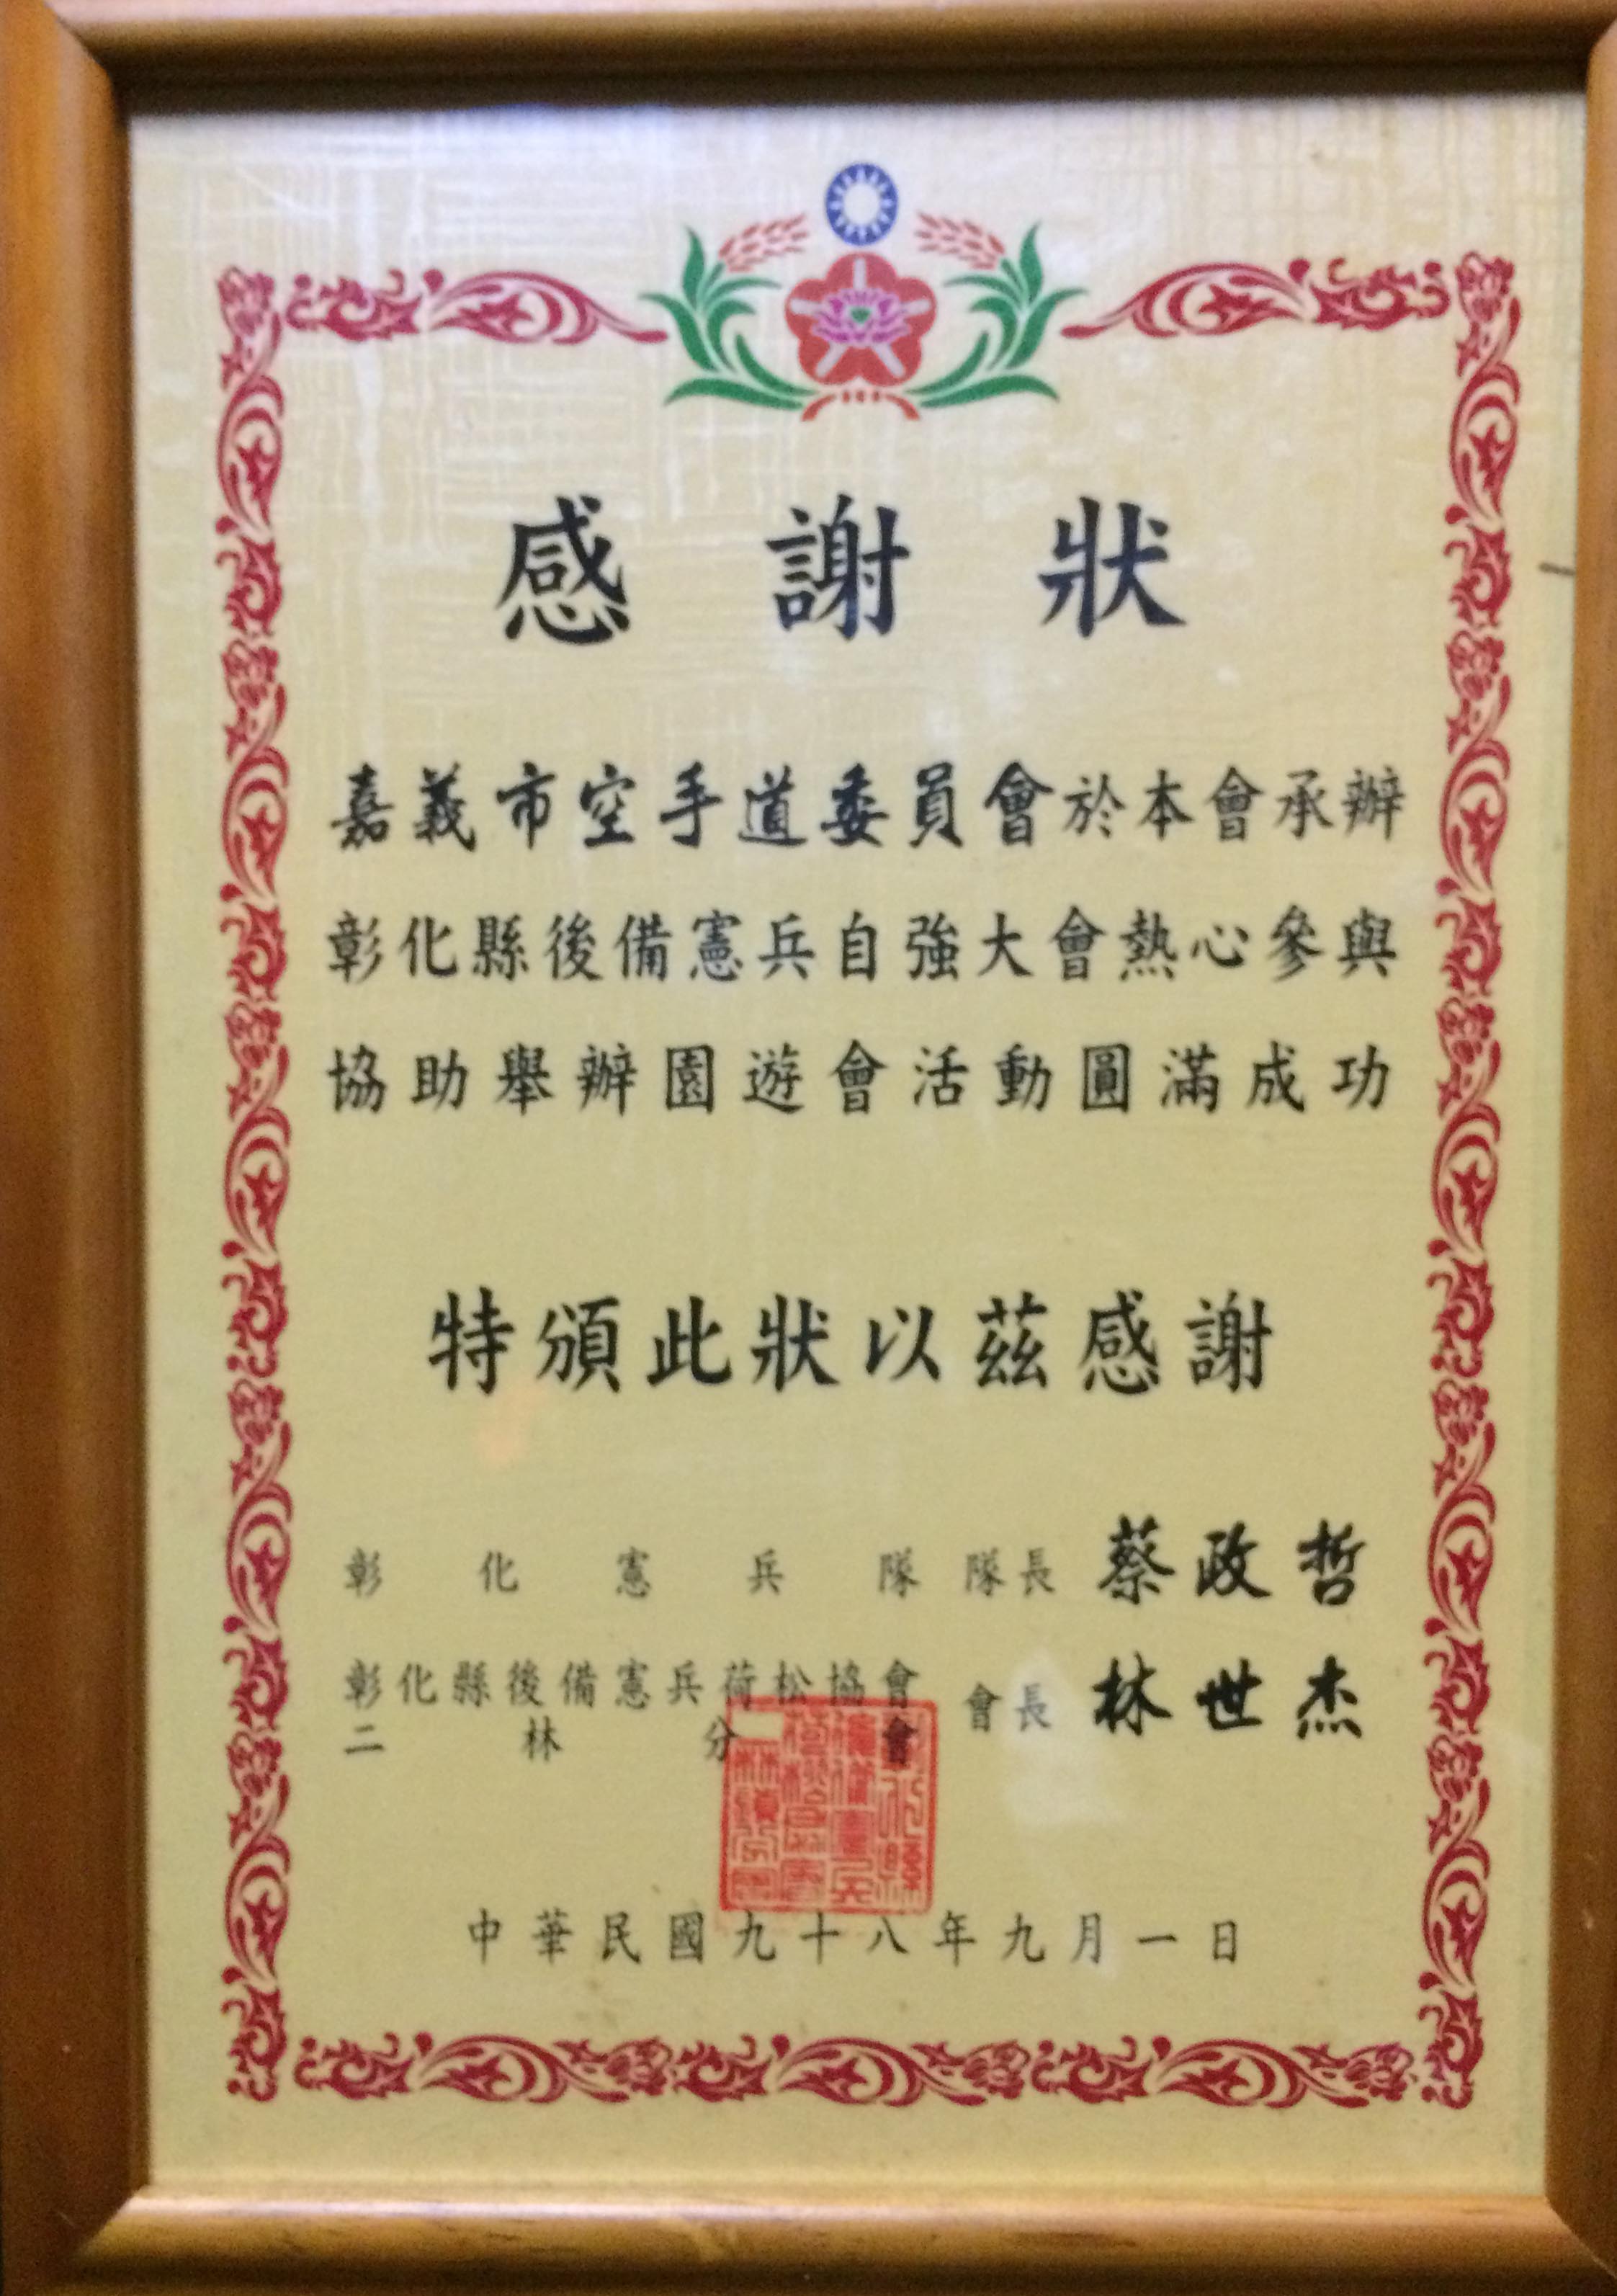 感謝狀
嘉義市空手道委員會於本會承辦
彰化縣後備憲兵自強大會熱心參與
協助舉辦園遊會活動圓滿成功
特頒此狀以茲感謝
彰化憲兵隊 隊長 蔡政哲
彰化縣後備憲兵荷松協會
二林分會 會長 林世杰
中華民國九十八年九月一日